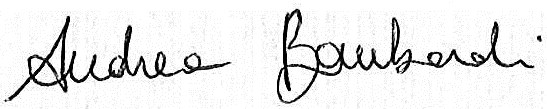 Andrea Bombardi